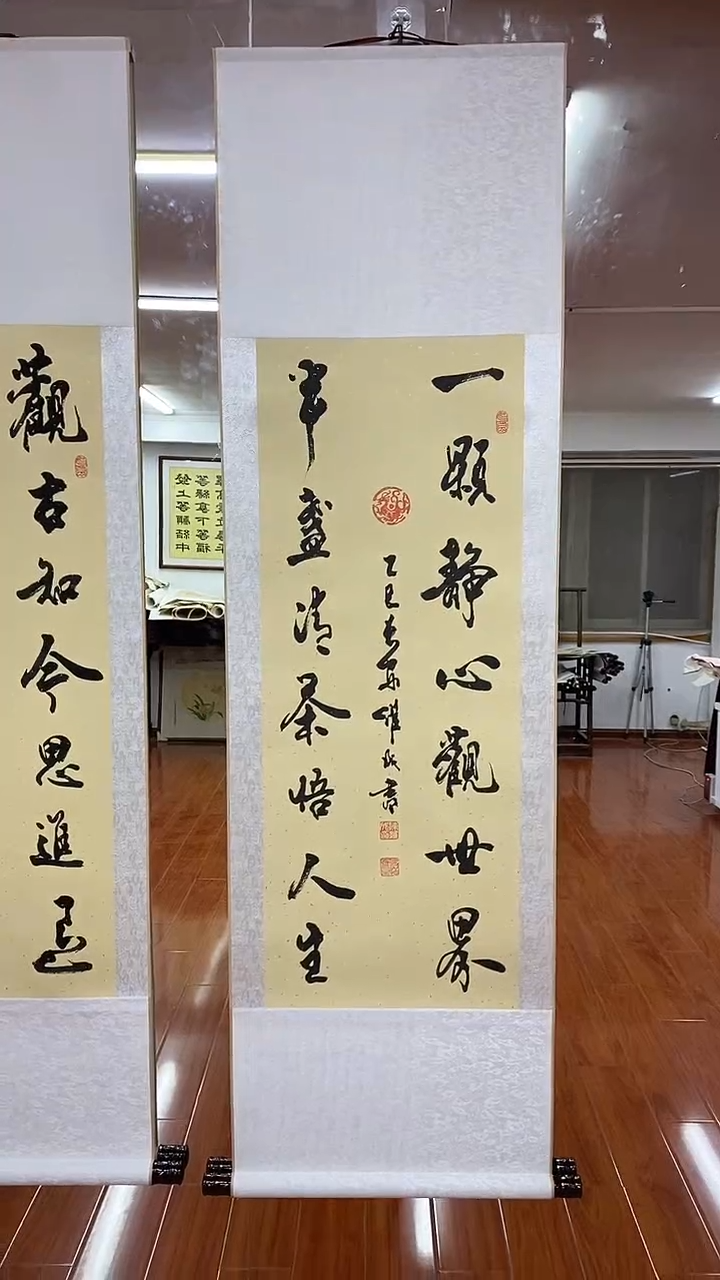 一顆靜心觀世界
半盞清茶悟人生
乙巳
書
觀古知今思進退